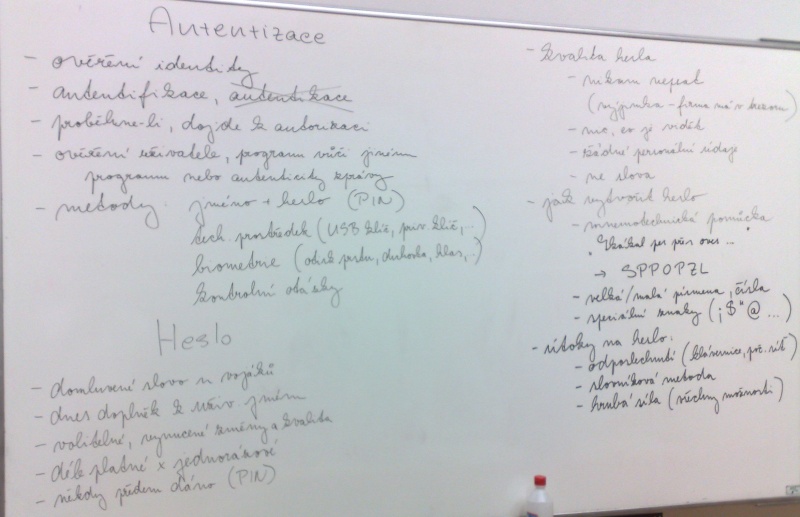 Autentizace
- ověření identity
- autentifikace, autentikace
- proběhne-li, dojde k autorizaci
- ověření uživatele, programu vůči jinému
programu nebo autenticity zprávy
- metody: jméno + heslo (PIN)
tech. prostředek (USB klíč, priv. klíč, ...)
biometrie (otisk prstu, duhovka, hlas, ...)
kontrolní otázky
Heslo
- domluvené slovo u vojáků
- dnes doplněk k uživ. jménu
- volitelné, vynucené změny a kvalita
- déle platné x jednorázové
- někdy předem dáno (PIN)
- kvalita hesla
- nikam nepsat
(výjimka - firma má v trezoru)
- nic, co je vidět
- žádné personální údaje
- ne slova
- jak vytvořit heslo
- mnemotechnická pomůcka
"Skákal pes přes oves ..."
→ SPPOPZL
- velká/malá písmena, čísla
- speciální znaky (¡$"@ ...)
- útoky na heslo:
- odposlechnutí (klávesnice, poč. síť)
- slovníková metoda
- hrubá síla (všechny možnosti)